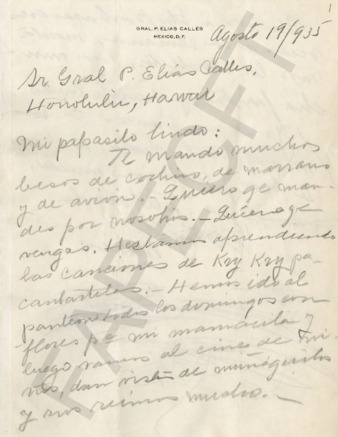 1
GRAL. P. ELIAS CALLES
MEXICO, D.F.
Agosto 19/935
Sr. Gral P. Elías Calles.
Honolulu, Hawai
Mi papasito lindo:
Te mando muchos
besos de cochino, de marrano
y de avion. - Quiero qe man-
des por nosotros. - Quiero qe
vengas. Hestamos aprendiendo
las canciones de Kry Kry pa
cantartelas. - Hemos ido al
panteon todos los domingos con
flores pa mi mamacita y
luego vamos al cine
dan vistas de muñequitos
y nos reimos mucho. -
FAPECFT